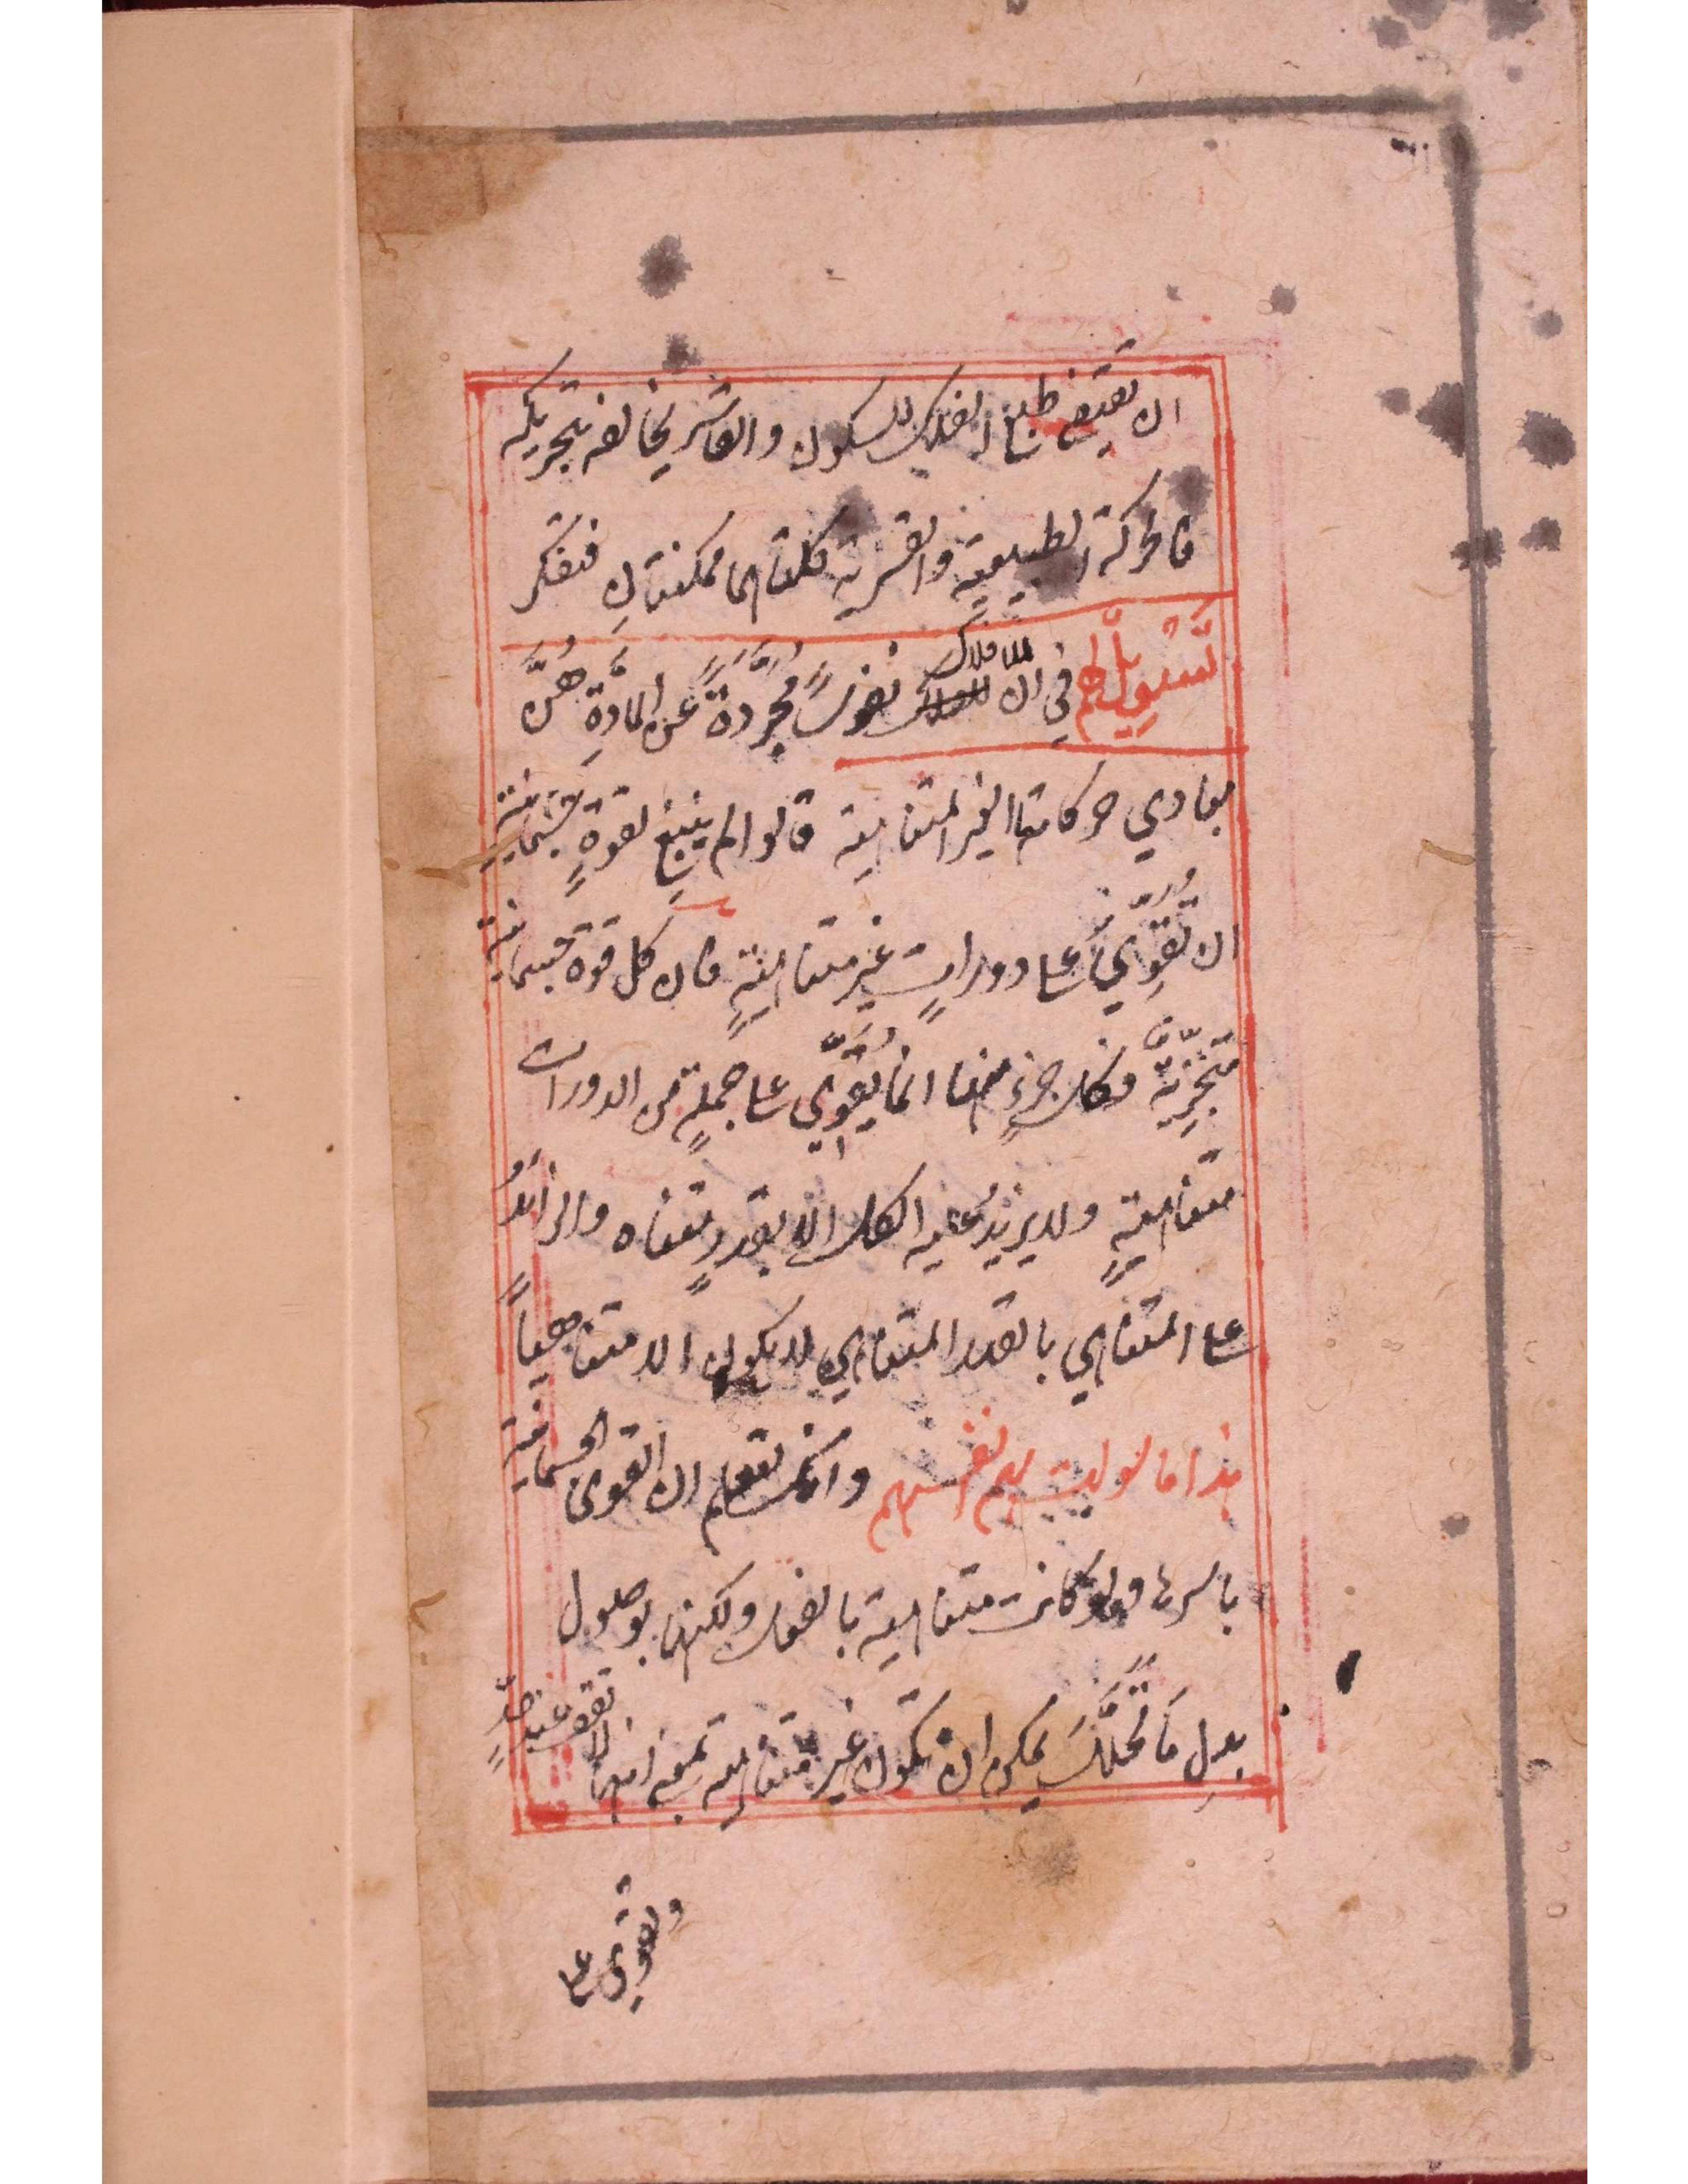 ان يقتضي طباع الفلك للسكون والقاسر يخالفه بتحريكه
فالحركة الطبيعية والقسرية كلتاهما ممكنتانِ فتفكر
تَسْوِيلٌ لهم في ان للافلاك نفوسًا مُجَرَّدَةً عَن المَادَّةِ هُنَّ
مبادي حركاتها الغير المتناهية قالوا لم ينبغِ لقوةٍ جسمانية
ان تُقَوِّيَ على دوراتٍ غير متناهيةٍ فان كل قوة جسمانية
متجزِّيةٌ وكل جزءٍ منها انما يُقَوّي على جملةٍ من الدورات
متناهيةٍ ولا يزيدُ عليه الكل الا بقدرٍ متناه والزائدُ
على المتناهي بالقدر المتناهي لا يكون الا متناهياً
هذا ما سولت لهم انفسهم وانك تعلم ان القوى الجسمانية
باسرها ولو كانت متناهية بالفعل ولكنها بوصول
بدلِ مَا تَحَلَّلَ يمكن ان تكون غير متناهية بمعنى انها لا تقف عند حدٍّ
وتقوى على